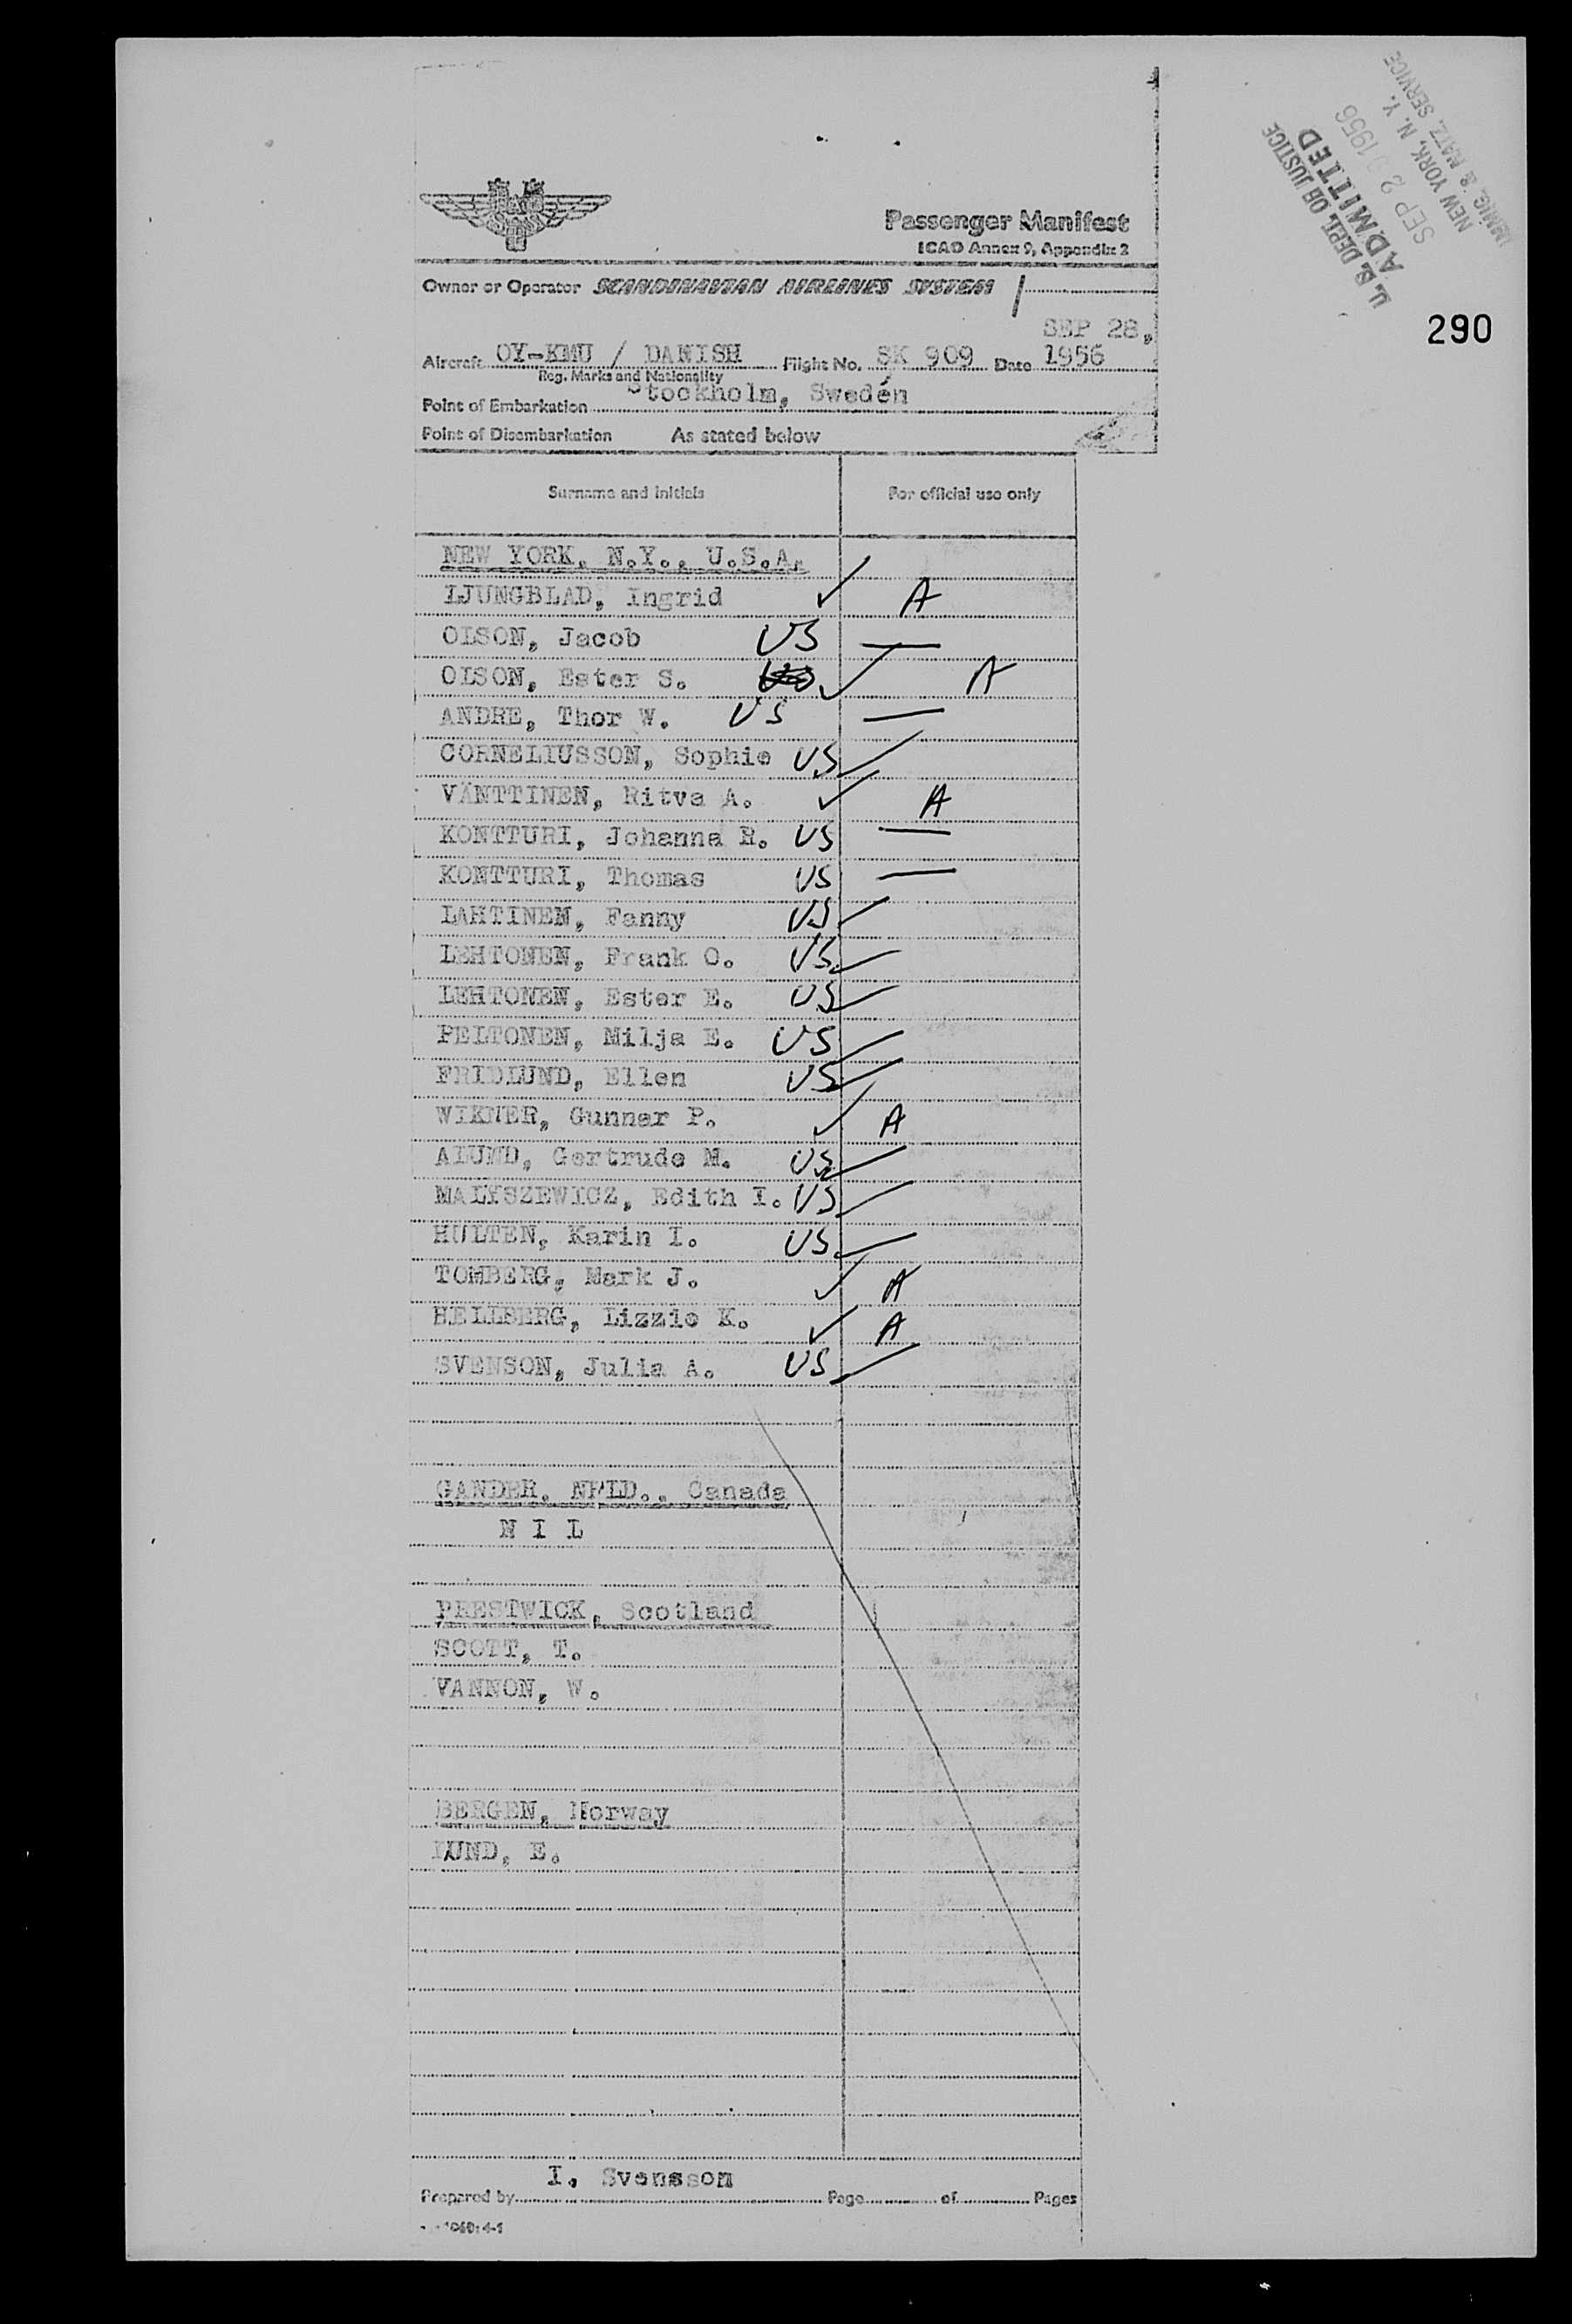 U. S. DEPT. OF JUSTICE
ADMITTED
SEP 2 1956
NEW YORK, N. Y.
IMMIG. & NATZ. SERVICE
290
Passenger Manifest
ICAO Annex 9, Appendix 2
Owner or Operator SCANDINAVIAN AIRLINES SYSTEM
SEP 28,
Aircraft OY-KMU / DANISH Flight No. SK 909 Date 1956
Reg. Marks and Nationality
Point of Embarkation Stockholm, Sweden
Point of Disembarkation As stated below
Surname and initials For official use only
NEW YORK, N.Y., U.S.A.
LJUNGBLAD, Ingrid ✓ A
OLSON, Jacob US —
OLSON, Ester S. ✓ A
ANDRE, Thor W. US —
CORNELIUSSON, Sophie US ✓
VÄNTTINEN, Ritva A. ✓ A
KONTTURI, Johanna R. US —
KONTTURI, Thomas US —
LAHTINEN, Fanny US ✓
LEHTONEN, Frank O. US ✓
LEHTONEN, Ester E. US ✓
PELTONEN, Milja E. US ✓
FRIDLUND, Ellen US ✓
WIKNER, Gunnar P. ✓ A
ALUND, Gertrude M. US ✓
MALYSZEWICZ, Edith I. US ✓
HULTEN, Karin I. US ✓
TOMBERG, Mark J. ✓ A
HELLBERG, Lizzie K. ✓ A
SVENSON, Julia A. US ✓
GANDER, NFLD., Canada
N I L
PRESTWICK, Scotland
SCOTT, T.
VANNON, W.
BERGEN, Norway
LUND, E.
I. Svensson
Prepared by Page of Pages